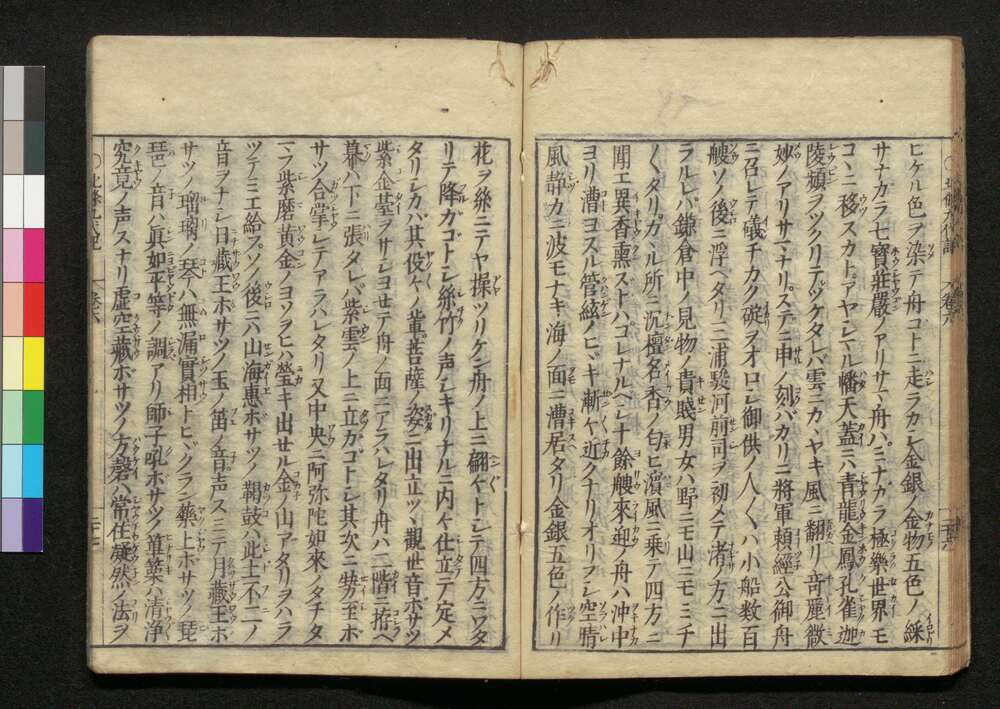 ヒケル色ヲ染テ舟コトニ走ラカシ金銀ノ金物五色ノ綵
サナカラ七寳莊嚴ノアリサマ舟ハミナガラ極樂世界モ
コヽニ移スカトアヤシマル幡天蓋ニハ青龍金鳳孔雀迦
陵頻ヲツクリテツケタレバ雲ニカヽヤキ風ニ翻リ奇麗微
妙ノアリサマナリステニ申ノ刻バカリニ將軍頼經公御舟
ニ召レテ礒チカク碇ヲオロシ御供ノ人〱ハ小船数百
艘ソノ後ニ浮ヘタリ三浦駿河前司ヲ初メテ渚ノ方ニ出
ラルレバ鎌倉中ノ見物ノ貴賤男女ハ野ニモ山ニモミチ
〱タリカヽル所ニ沉檀名香ノ匂ヒ濵風ニ乗テ四方ニ
聞エ異香熏ズトハコレナルヘシ十余艘來迎ノ舟ハ沖中
ヨリ漕ヨスル管絃ノヒヾキ漸〱近クナリオリフシ空晴
風静カニ波モナキ海ノ面ニ漕居タリ金銀五色ノ作リ
花ヲ絲ニテヤ操ツリケン舟ノ上ニ翩〱トシテ四方ニワタ
リテ降ガゴトシ絲竹ノ声シキリナルニ内〱仕立テ定メ
タリシカハ其役〱ノ菩薩ノ姿ニ出立ツヽ觀世音ボサツ
紫金䑓ヲサシヨセテ舟ノ面ニアラハレタリ舟ハ二階ニ拵ヘ
幕ハ下ニ張タレバ紫雲ノ上ニ立カゴトシ其次ニ勢至ホ
サツ合掌シテアラハレタリ又中央ニ阿弥陀如來ノタチタ
マフ紫磨黄金ノヨソヲヒハ瑩キ出せル金ノ山アタリヲハラ
ツテミエ給フソノ後ニハ山海惠ホサツノ鞨鼓ハ此土不二ノ
音ヲナシ日藏王ホサツノ玉ノ笛ノ音声スミテ月藏王ホ
サツノ瑠璃ノ琴ハ無漏實相トヒヾクラン藥上ボサツノ琵
琶ノ音ハ眞如平等ノ調アリ師子吼ホサツノ篳篥ハ清淨
究竟ノ声スナリ虚空藏ホサツノ方磬ハ常住凝然ノ法ヲ